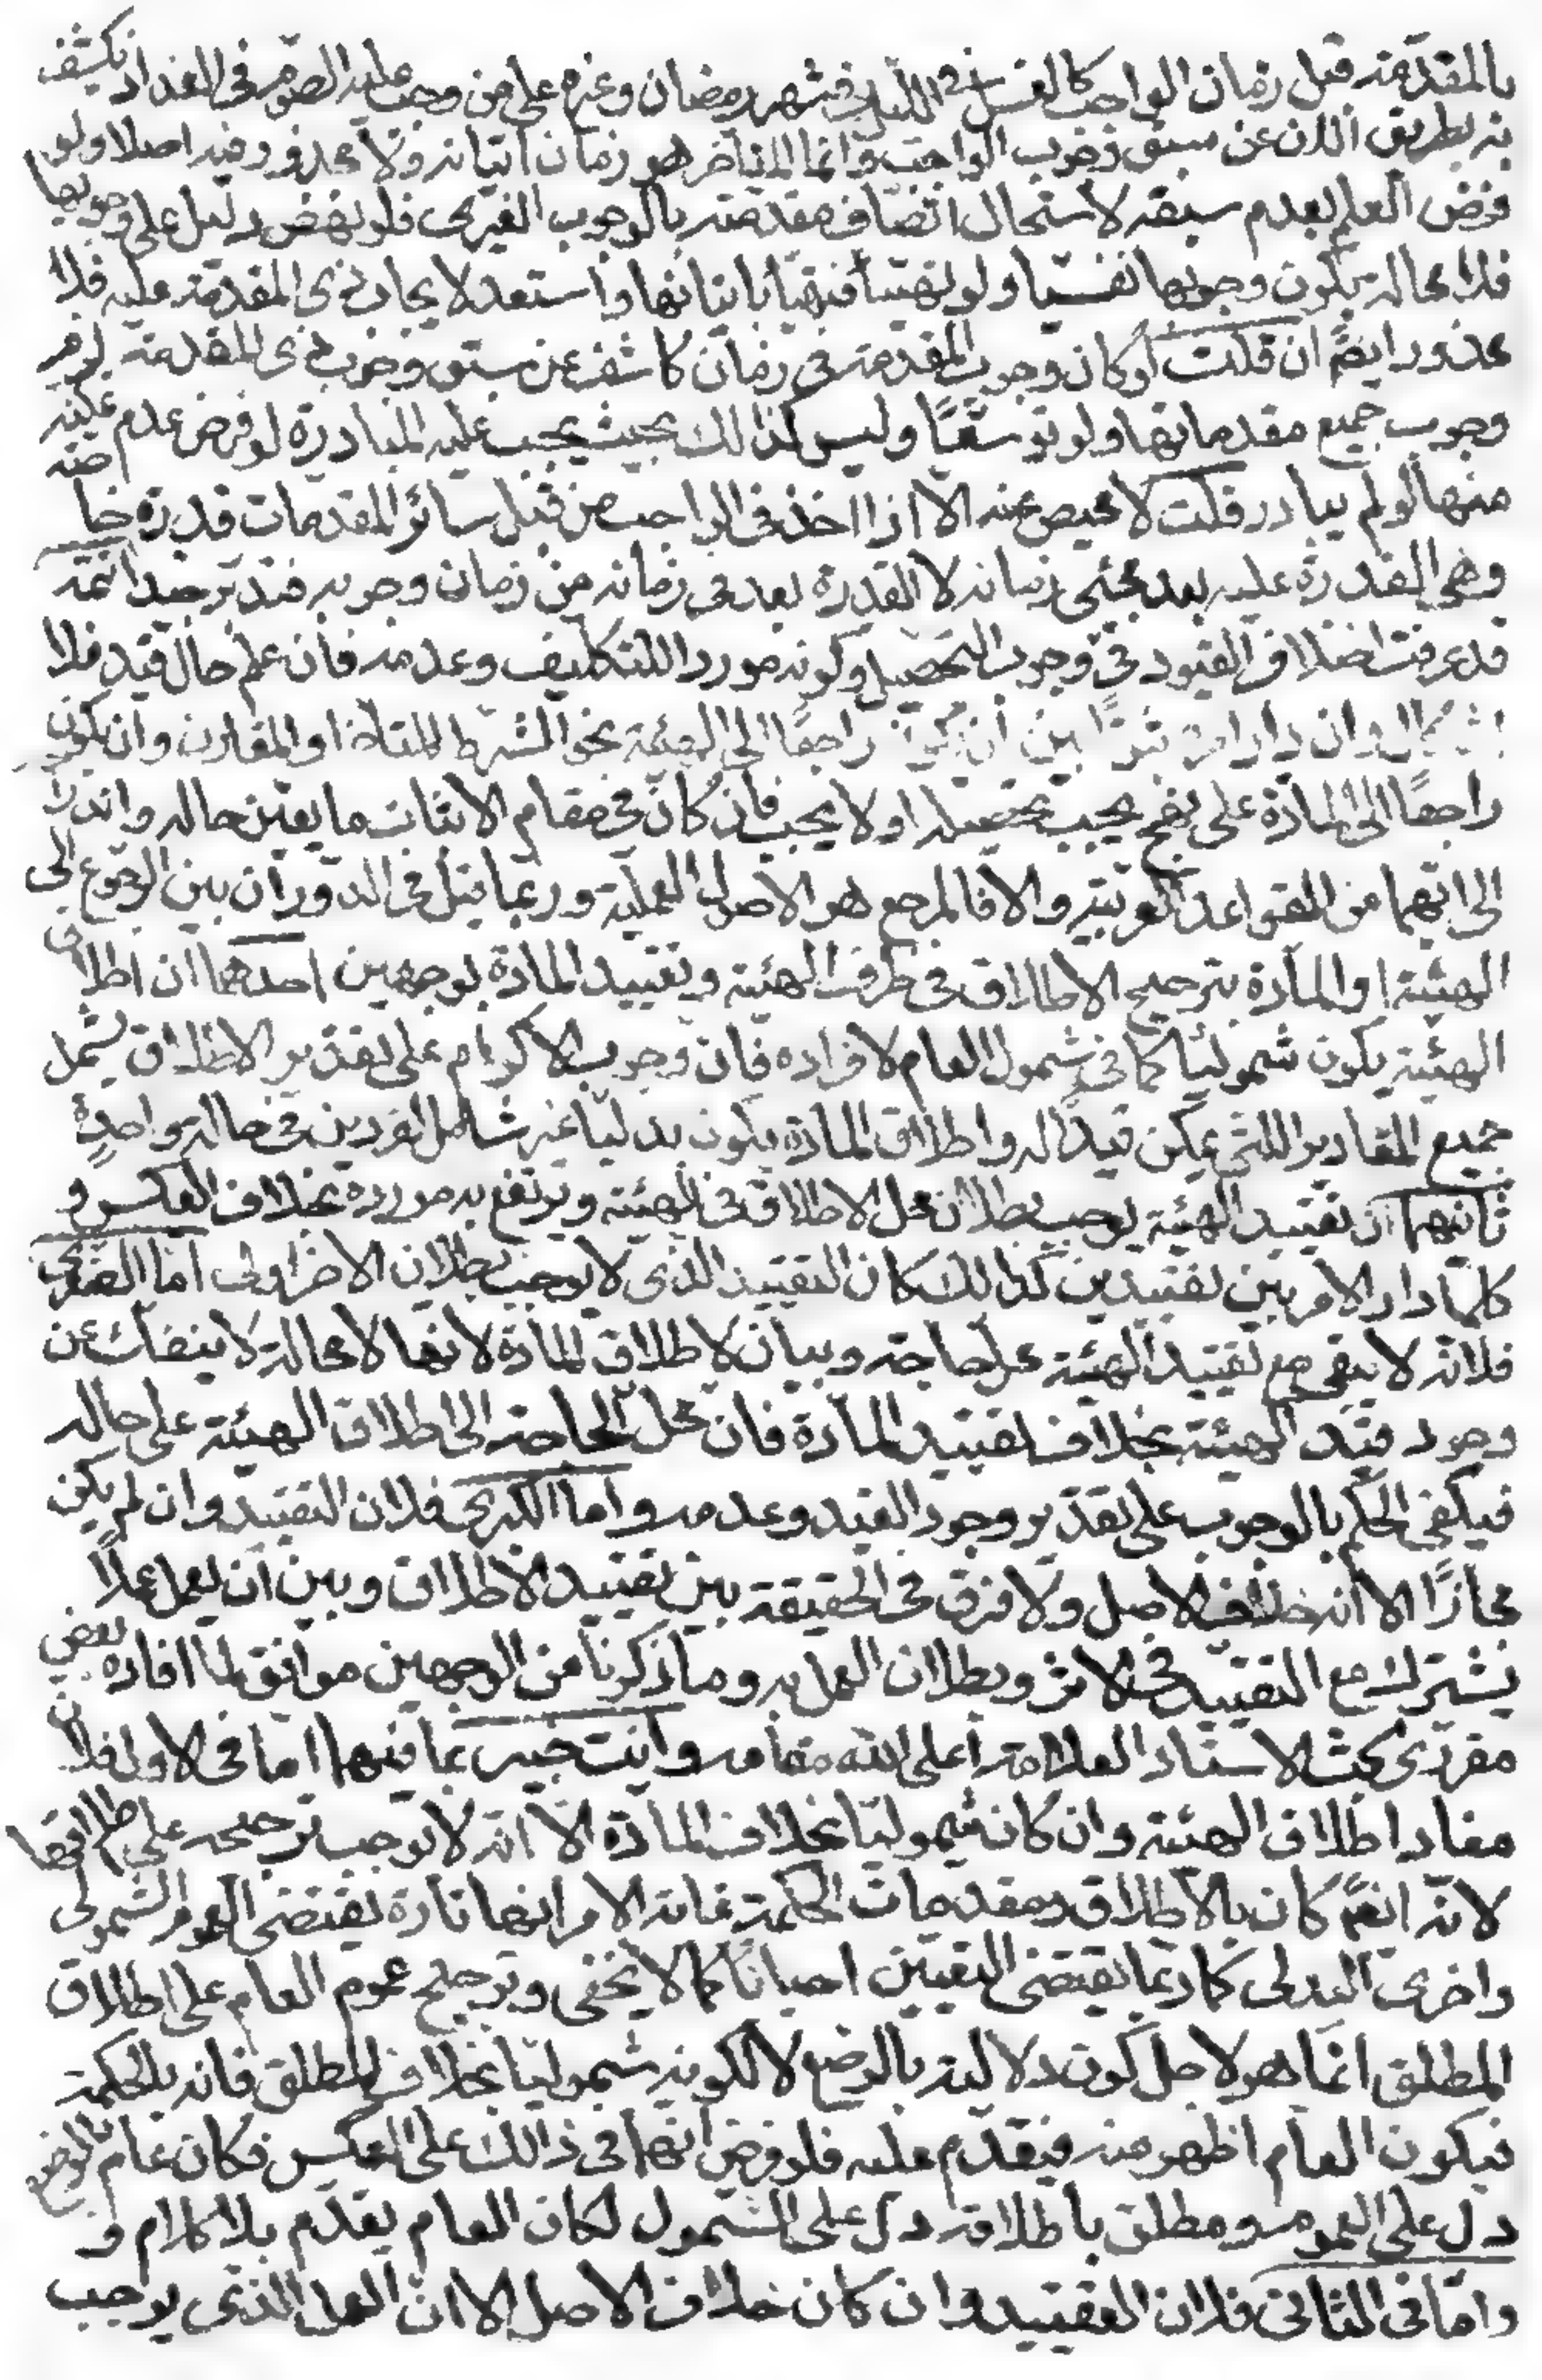 بالمقدمة قبل زمان الواجب كالغسل في الليل في شهر رمضان وغيره على من وجب عليه الصوم في الغد اذ يكشف
به بطريق الان عن سبق وجوب الواجب وانما المتاخر هو زمان اتيانه ولا محذور فيه اصلا ولو
فرض العلم بعدم سبقه لاستحال اتصاف مقدمته بالوجوب الغيرى فلو نهض دليل على وجوبها
فلا محالة يكون وجوبها نفسيا ولو تهيئا ليتهيا باتيانها واستعد لايجاب ذى المقدمة عليه فلا
محذور ايضا ان قلت لو كان وجوب المقدمة في زمان كاشفا عن سبق وجوب ذى المقدمة لزم
وجوب جميع مقدماتها ولو توسعا وليس كذالك بحيث يجب عليه المبادرة لو فرض عدم تمكنه
منها لو لم يبادر قلت لا محيص عنه الا اذا اخذ في الواجب من قبل سائر المقدمات قدرة خاصة
وهى القدرة عليه بعد مجئى زمانه لا القدرة بعد في زمانه من زمان وجوبه فتدبر جيدا تتمة
قد عرفت اختلاف القيود في وجوب التحصيل وكونه موردا للتكليف وعدمه فان علم حال قيد فلا
اشكال وان دار امره ثبوتا بين ان يكون راجعا الى الهيئة نحو الشرط المتاخر او المقارن وان يكون
راجعا الى المادة على نهج يجب تحصيله او لا يجب فان كان في مقام الاثبات ما يعين حاله وانه راجع
الى ايهما من القواعد العربية والا فالمرجع هو الاصول العملية وربما قيل في الدوران بين الرجوع الى
الهيئة او المادة بترجيح الاطلاق في طرف الهيئة وتقييد المادة بوجهين احدهما ان اطلاق
الهيئة يكون شموليا كما في شمول العام لافراده فان وجوب الاكرام على تقدير الاطلاق يشمل
جميع التقادير اللتى يمكن قيدا له واطلاق المادة يكون بدليا غير شامل لفردين في حالة واحدة
ثانيهما ان تقييد الهيئة يوجب بطلان محل الاطلاق في الهيئة ويرتفع به مورده بخلاف العكس و
كلما دار الامر بين تقييدين كذالك كان التقييد الذى لا يوجب بطلان الاخر اولى اما الصغرى
فلانه لا يبقى مع تقييد الهيئة محل حاجة وبيان لاطلاق المادة لانها لا محالة لا ينفك عن
وجود قيد الهيئة بخلاف تقييد المادة فان محل الحاجة الى اطلاق الهيئة على حاله
فيكفى الحكم بالوجوب على تقدير وجود القيد وعدمه واما الكبرى فلان التقييد وان لم يكن
مجازا الا انه خلاف الاصل ولا فرق في الحقيقة بين تقييد الاطلاق وبين ان يعمل عملا
يشترك مع التقييد في الاثر وبطلان العمل به وما ذكرنا من الوجهين موافق لما افاده بعض
مقررى بحث الاستاد العلامة اعلى الله مقامه وانت خبير بما فيهما اما في الاول فلان
مفاد اطلاق الهيئة وان كان شموليا بخلاف المادة الا انه لا يوجب ترجيحه على اطلاقها
لانه ايضا كان بالاطلاق ومقدمات الحكمة غاية الامر انها تارة يقتضى العموم الشمولى
واخرى البدلى كما ربما يقتضى التعيين احيانا كما لا يخفى وترجيح عموم العام على اطلاق
المطلق انما هو لاجل كون دلالته بالوضع لا لكونه شموليا بخلاف المطلق فانه بالحكمة
فيكون العام اظهر منه فيقدم عليه فلو فرض انهما في ذالك على العكس فكان عام بالوضع
دل على العموم ومطلق باطلاقه دل على الشمول لكان العام يقدم بلا كلام و
واما في الثانى فلان التقييد وان كان خلاف الاصل الا ان العمل الذى يوجب